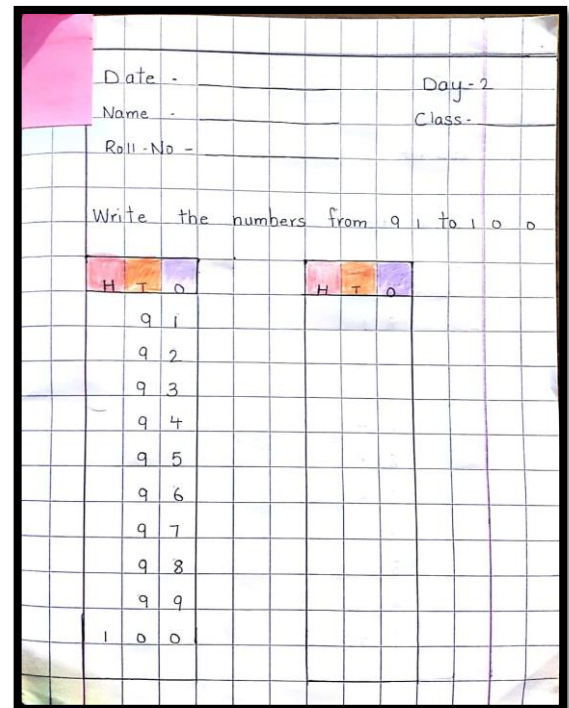 Date - Day-2
Name - Class-
Roll-No -
Write the numbers from 91 to 100
H T O H T O
91
92
93
94
95
96
97
98
99
100